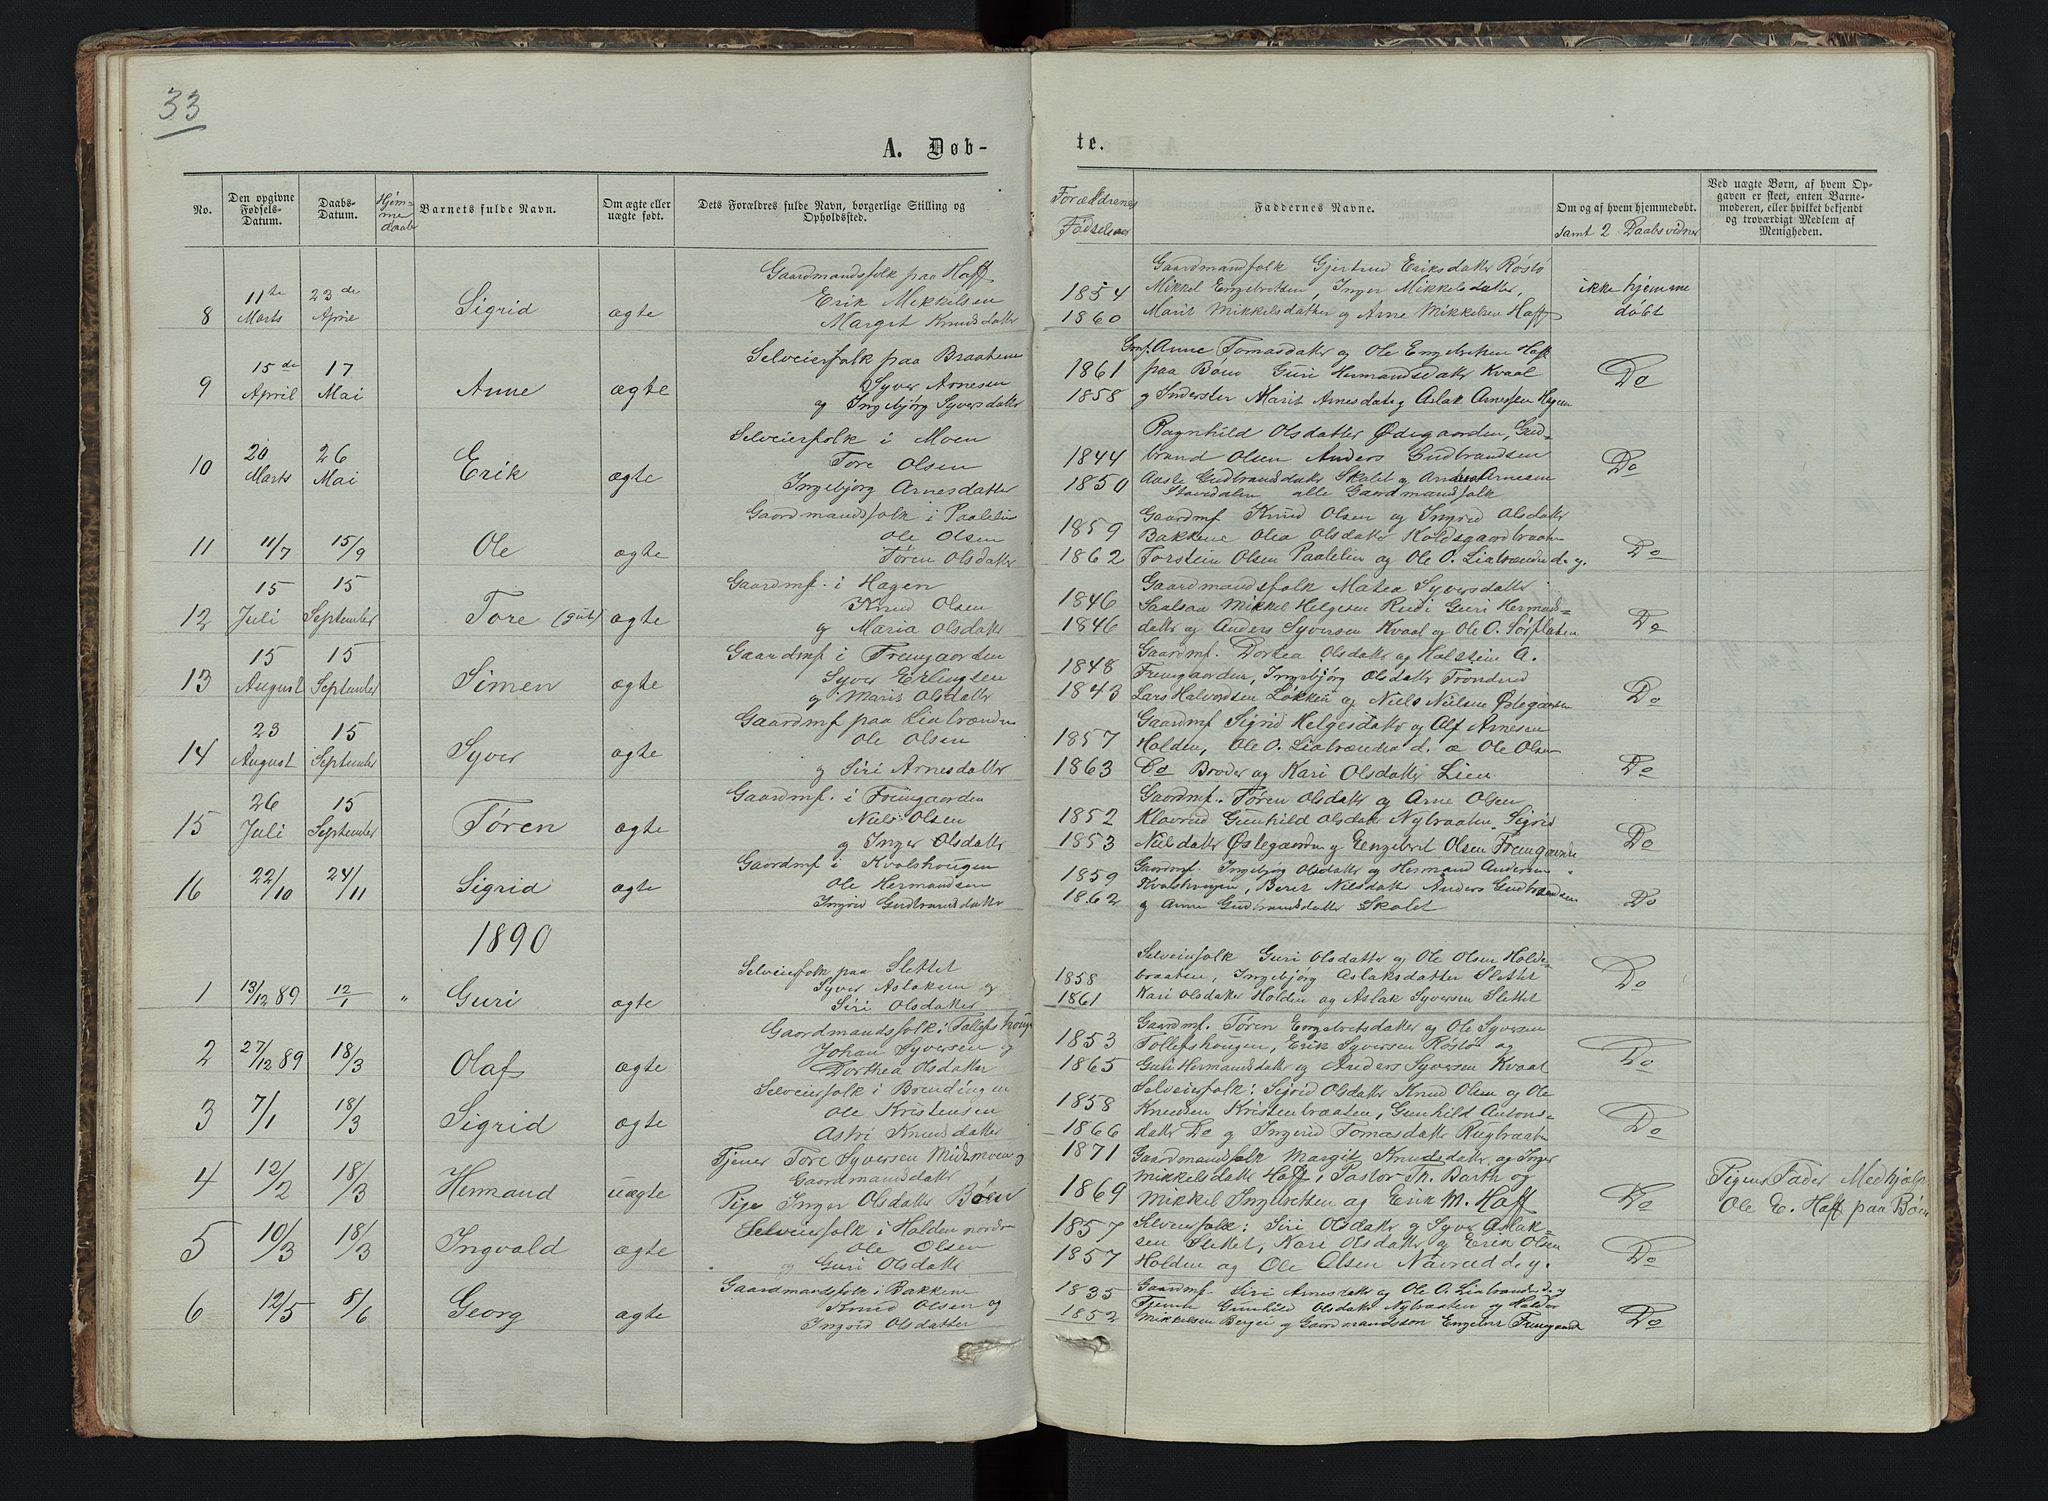 33
A. Døb-
te.
No.
Den opgivne Fødsels-Datum.
Daabs-Datum.
Hjemmedaab
Barnets fulde Navn.
Om ægte eller uægte født.
Dets Forældres fulde Navn, borgerlige Stilling og Opholdssted.
Forældrenes Fødselsaar
Faddernes Navne.
Om og af hvem hjemmedøbt. samt 2 Daabsvidner
Ved uægte Børn, af hvem Opgaven er skeet, enten Barnemoderen, eller hvilket bekjendt og troværdigt Medlem af Menigheden.
8 11te Marts 23de April Sigrid ægte
Gaardmandsfolk paa Haff
Erik Mikkelsen
Margit Knudsdatter
1854
1860
Gaardmandfolk Gjertrud Eriksdatter Røstø
Mikkel Engebretsen, Inger Mikkelsdatter,
Marit Mikkelsdatter og Arne Mikkelsen Haff
ikke hjemme
døbt
9 15de April 17 Mai Anne ægte
Selveierfolk paa Braatene
Syver Arnesen
og Ingebjørg Syversdatter
1861
1858
Gmf. Anne Tomasdatter og Ole Engebretsen Haff
paa Bøen Guri Hermandsdatter Kvaal
og Inderster Marit Arnesdatter og Aslak Arnessen Hagen
Do
10 20 Marts 26 Mai Erik ægte
Selveierfolk i Moen
Tore Olsen
Ingebjørg Arnesdatter
1844
1850
Ragnhild Olsdatter Ødegaarden, Gud-
brand Olsen Anders Gudbrandsen
Aasle Gudbransdatter Skolet og Anders Arnesen
Stavdalen alle Gaardmandsfolk
Do
11 11/7 15/9 Ole ægte
Gaardmandsfolk i Paalelien
Ole Olsen
Tøren Olsdatter
1859
1862
Gaardmf Knud Olsen og Ingrid Olsdatter
Bakkene Olea Olsdatter Koldsgaardbraaten
Torstein Olsen Paalelien og Ole O. Liabrænden d. y.
Do
12 15 Juli 15 September Tore (gut) ægte
Gaardmf. i Hagen
Knud Olsen
og Maria Olsdatter
1846
1846
Gaardmandsfolk Matea Syversdatter
Saalsaa Mikkel Helgesen Rudi Guri Hermands-
datter og Anders Syversen Kvaal og Ole O. Sørflaten
Do
13 15 August 15 September Simen ægte
Gaardmf i Fremgaarden
Syver Erlingsen
og Marit Olsdatter
1848
1843
Gaardmf. Dortea Olsdatter og Halstein A.
Fremgaarden, Ingebjørg Olsdatter Tronderud
Lars Halvordsen Løkken og Niels Nielsen Østegaarden
Do
14 23 August 15 September Syver ægte
Gaardmf paa Liabrænden
Ole Olsen
og Siri Arnesdatter
1857
1863
Gaardmf Sigrid Helgesdatter og Olf Arnesen
Holden, Ole O. Liabrænden d. æ Ole Olsen
Do Broder og Kari Olsdatter Lien
Do
15 26 Juli 15 September Tøren ægte
Gaardmf. i Fremgaarden
Niels Olsen
og Inger Olsdatter
1852
1853
Gaardmf. Tøren Olsdatter og Arne Olsen
Klevrud Gunhild Olsdatter Nybraaten, Sigrid
Nielsdatter Østegaarden og Engebret Olsen Fremgaarden
Do
16 22/10 24/11 Sigrid ægte
Gaardmf i Kvalshougen
Ole Hermandsen
Ingrid Gudbrandsdatter
1859
1862
Gaardmf. Ingebjørg Olsdatter og Hermand Andersen
Kvalshougen, Beret Nilsdatter Anders Gudbrandsen
og Anne Gudbrandsdatter Skolet
Do
1890
1 13/12 89 12/1 " Guri ægte
Selveierfolk paa Slettet
Syver Aslaksen og
Siri Olsdatter
1858
1861
Selveierfolk Guri Olsdatter og Ole Olsen Holde-
braaten, Ingebjørg Aslaksdatter Slettet
Kari Olsdatter Holden og Aslak Syversen Slettet
Do
2 27/12 89 18/3 Olaf ægte
Gaardmandsfolk i Tollefshougen
Johan Syversen og
Dorthea Olsdatter
1853
1865
Gaardmf. Tøren Engebretsdatter og Ole Syversen
Tollefshougen, Erik Syversen Røstø og
Guri Hermandsdatter og Anders Syversen Kvaal
Do
3 7/1 18/3 Sigrid ægte
Selveierfolk i Brendingen
Ole Kristensen
Astri Knudsdatter
1858
1866
Selveierfolk: Sigrid Olsdatter Knud Olsen og Ole
Knudsen Kristenbraaten, Gunhild Antons-
datter Do og Ingerid Tomasdatter Rugbraaten
Do
4 12/2 18/3 Hermand uægte
Tjener Tore Syversen Midtmoen og
Gaardmandsdatter
Pige Inger Olsdatter Bøen
1871
1869
Gaardmandsfolk Margit Knudsdatter, og Inger
Mikkelsdatter Haff, Pastor Th. Barth og
Mikkel Ingebretsen og Erik M. Haff
Do
Pigens Fader Medhjælper
Ole E. Haff paa Bøen
5 10/3 18/3 Ingvald ægte
Selveierfolk i Holden nordre
Ole Olsen
og Guri Olsdatter
1857
1857
Selveierfolk: Siri Olsdatter og Syver Aslak-
sen Slettet, Kari Olsdatter og Erik Olsen
Holden og Ole Olsen Navrud d. y.
Do
6 12/5 8/6 Georg ægte
Gaardmandsfolk i Bakkene
Knud Olsen og
Ingrid Olsdatter
1835
1852
Gaardmf. Siri Arnesdatter og Ole O. Liabrænden d. y
Tjenere Gunhild Olsdatter Nybraaten og Haldor
Mikkelsen Berjei og Gaardmandssøn Engebret Fremgaarden
Do